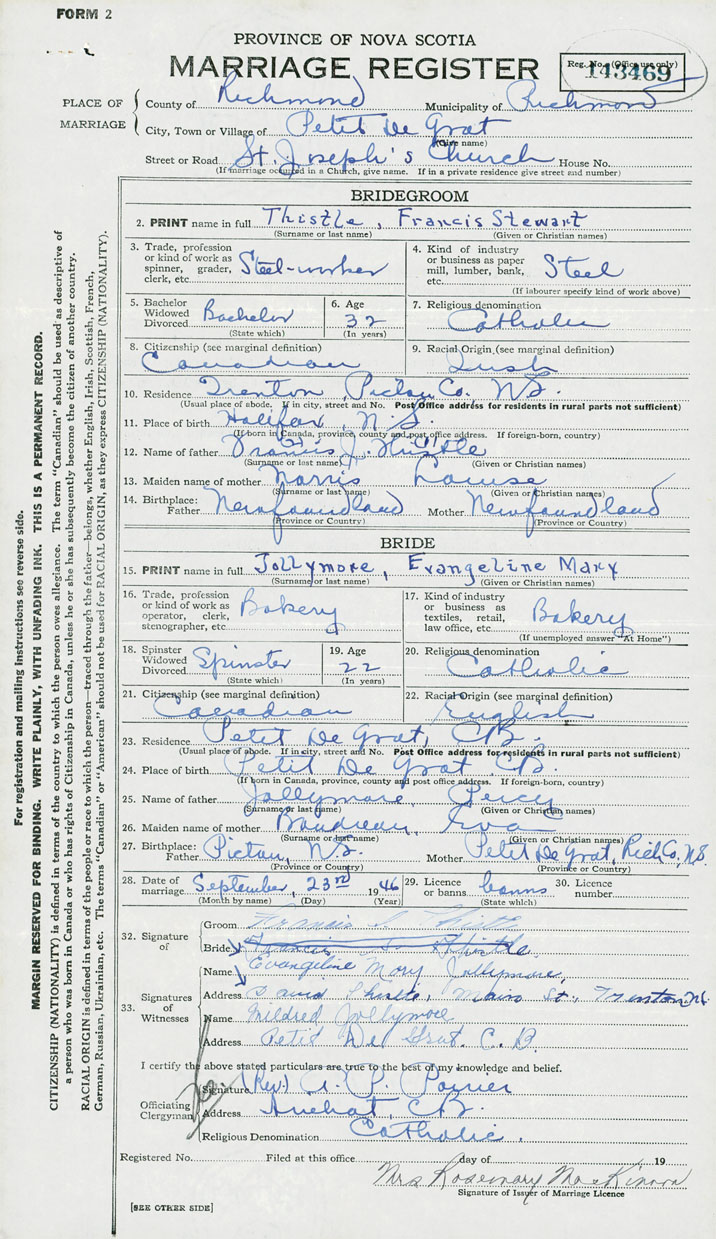 FORM 2
PROVINCE OF NOVA SCOTIA
MARRIAGE REGISTER
Reg. No. (Office use only)
143469
PLACE OF MARRIAGE
County of Richmond Municipality of Richmond
City, Town or Village of Petit De Grat
(Give name)
Street or Road St. Joseph's Church House No.
(If marriage occurred in a Church, give name. If in a private residence give street and number)
BRIDEGROOM
2. PRINT name in full Thistle, Francis Stewart
(Surname or last name) (Given or Christian names)
3. Trade, profession or kind of work as spinner, grader, clerk, etc. Steel-worker
4. Kind of industry or business as paper mill, lumber, bank, etc. Steel
(If labourer specify kind of work above)
5. Bachelor Widowed Divorced Bachelor
(State which)
6. Age 32
(In years)
7. Religious denomination Catholic
8. Citizenship (see marginal definition) Canadian
9. Racial Origin (see marginal definition) Irish
10. Residence Trenton, Pictou Co. N.S.
(Usual place of abode. If in city, street and No. Post Office address for residents in rural parts not sufficient)
11. Place of birth Halifax, N.S.
(If born in Canada, province, county and post office address. If foreign-born, country)
12. Name of father Francis J. Thistle
(2) (1)
(Surname or last name) (Given or Christian names)
13. Maiden name of mother Norris Louise
(Surname or last name) (Given or Christian names)
14. Birthplace: Father Newfoundland Mother Newfoundland
(Province or Country) (Province or Country)
BRIDE
15. PRINT name in full Jollymore, Evangeline Mary
(Surname or last name) (Given or Christian names)
16. Trade, profession or kind of work as operator, clerk, stenographer, etc. Bakery
17. Kind of industry or business as textiles, retail, law office, etc. Bakery
(If unemployed answer "At Home")
18. Spinster Widowed Divorced Spinster
(State which)
19. Age 22
(In years)
20. Religious denomination Catholic
21. Citizenship (see marginal definition) Canadian
22. Racial Origin (see marginal definition) English
23. Residence Petit De Grat, C.B.
(Usual place of abode. If in city, street and No. Post Office address for residents in rural parts not sufficient)
24. Place of birth Petit De Grat C.B.
(If born in Canada, province, county and post office address. If foreign-born, country)
25. Name of father Jollymore, Percy
(Surname or last name) (Given or Christian names)
26. Maiden name of mother Boudreau, Eva
(Surname or last name) (Given or Christian names)
27. Birthplace: Father Pictou, N.S. Mother Petit De Grat, Rich Co, N.S.
(Province or Country) (Province or Country)
28. Date of marriage September, 23rd 1946
(Month by name) (Day) (Year)
29. Licence or banns banns
(State which)
30. Licence number
32. Signature of
Groom Francis S. Thistle
Bride Francis S. Thistle
Name Evangeline Mary Jollymore,
33. Signatures of Witnesses
Address David Thistle, Main St., Trenton N.S.
Name Mildred Jollymore
Address Petit De Grat. C.B.
I certify the above stated particulars are true to the best of my knowledge and belief.
Officiating Clergyman
Signature (Rev.) A. P. Poirier
Address Arichat, C.B.
Religious Denomination Catholic.
Registered No. Filed at this office day of 19
Mrs Rosemary MacKinnon
Signature of Issuer of Marriage Licence
[SEE OTHER SIDE]
For registration and mailing instructions see reverse side.
MARGIN RESERVED FOR BINDING. WRITE PLAINLY, WITH UNFADING INK. THIS IS A PERMANENT RECORD.
CITIZENSHIP (NATIONALITY) is defined in terms of the country to which the person owes allegiance. The term "Canadian" should be used as descriptive of
a person who was born in Canada or who has rights of Citizenship in Canada, unless he or she has subsequently become the citizen of another country.
RACIAL ORIGIN is defined in terms of the people or race to which the person—traced through the father—belongs, whether English, Irish, Scottish, French,
German, Russian, Ukrainian, etc. The terms "Canadian" or "American" should not be used for RACIAL ORIGIN, as they express CITIZENSHIP (NATIONALITY).